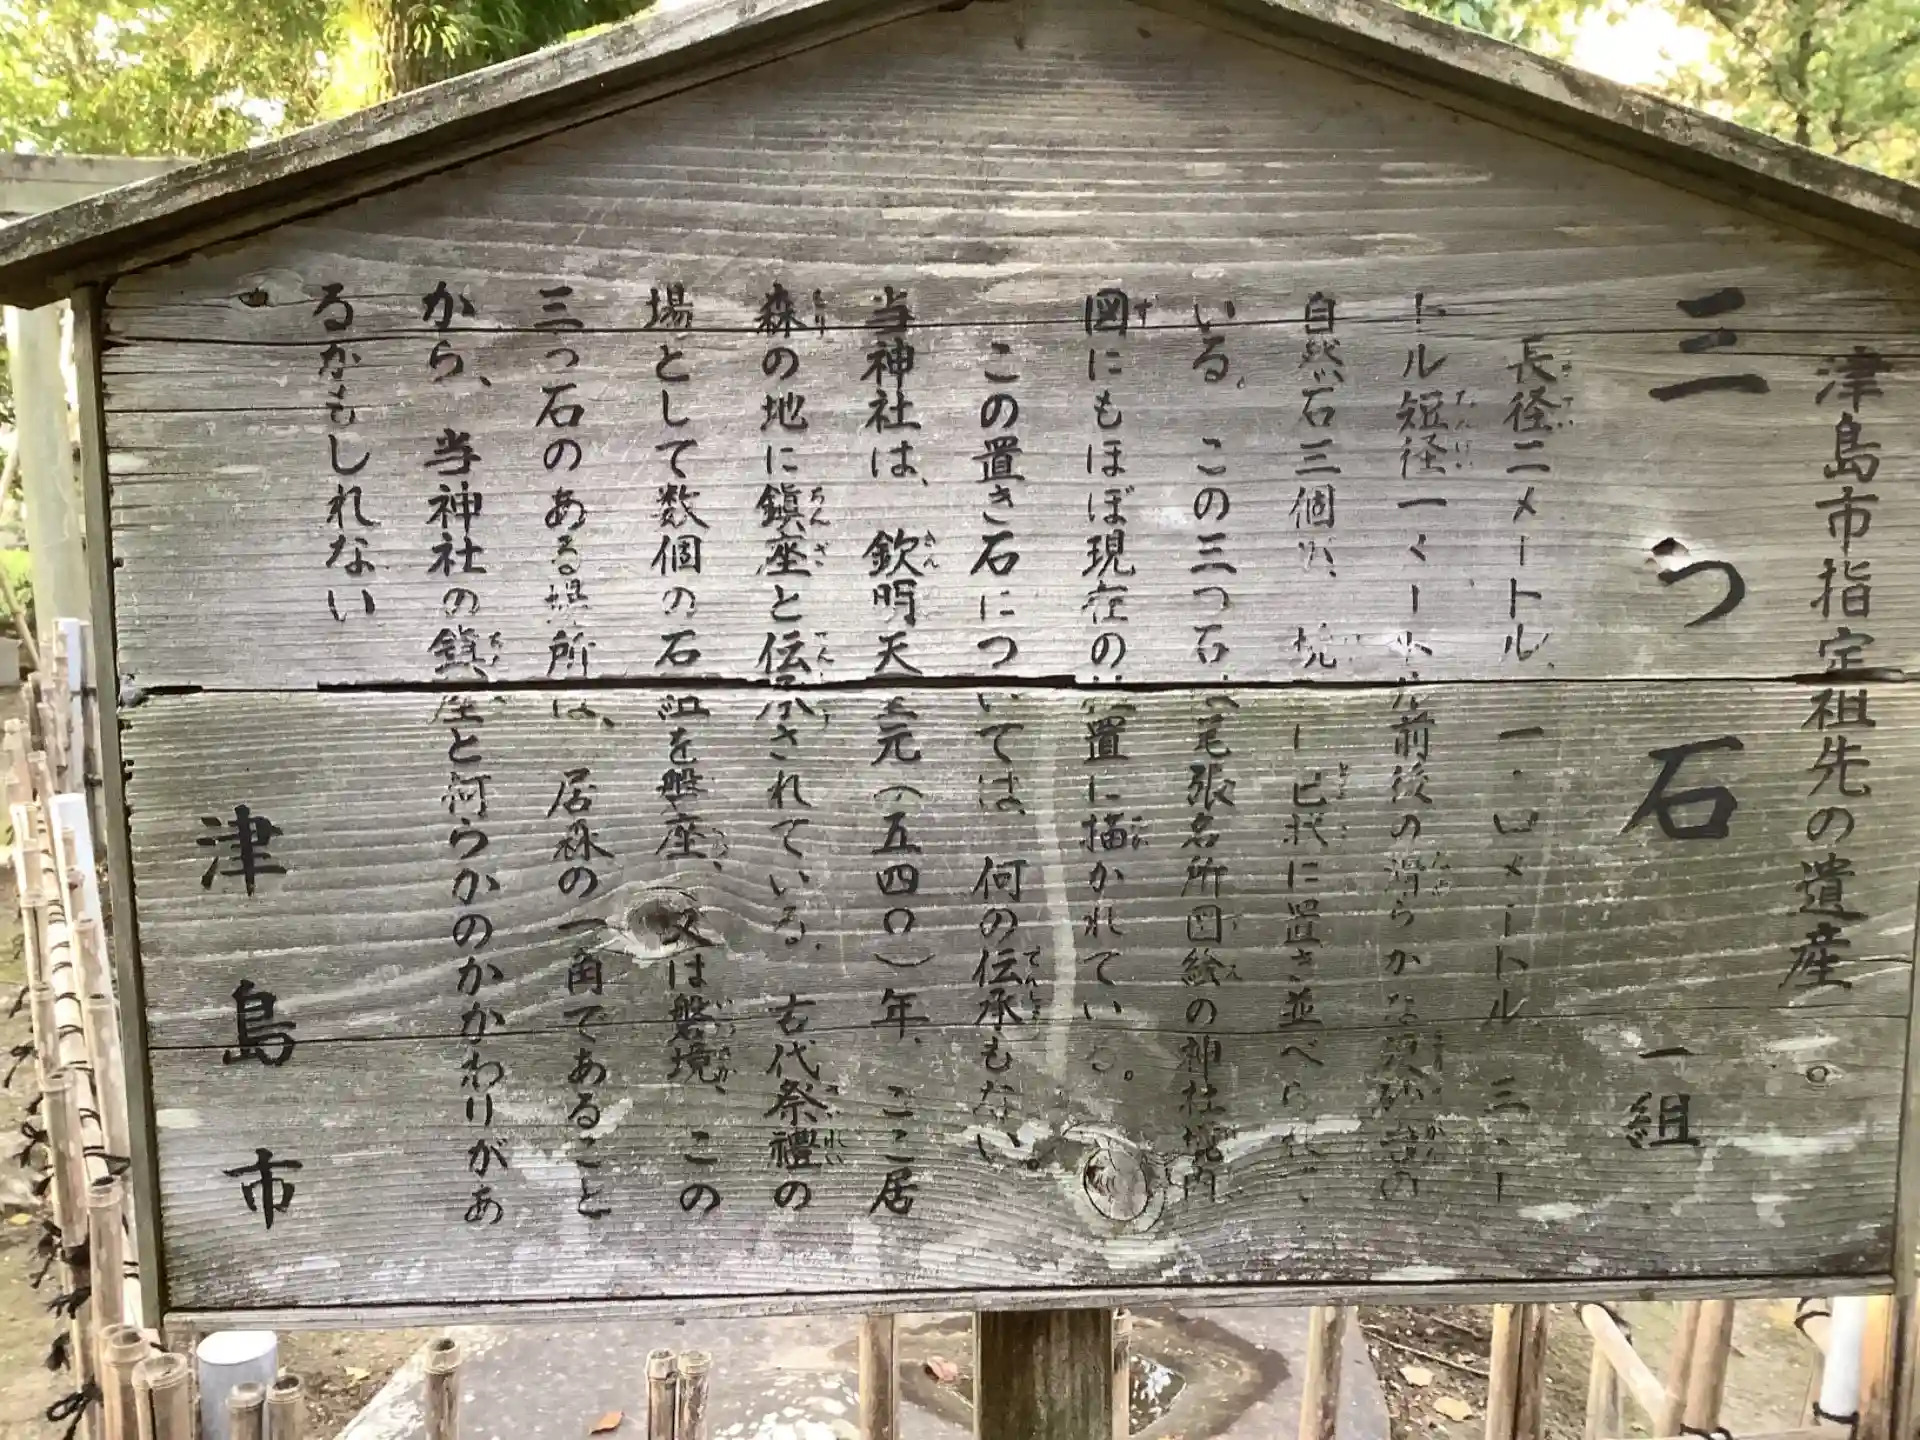 津島市指定祖先の遺産。
三つ石 一組
長径二メートル、一・四メートル、三・一
トル短径一メートル前後の滑らかな硬砂岩の
自然石三個が、境
いる。この三つ石 尾張名所図絵の神社境内
図にもほぼ現在の位置に描かれている。
この置き石については、何の伝承もない。
当神社は、欽明天皇元（五四〇）年、ここ居
森の地に鎮座と伝承されている。古代祭禮の
場として数個の石組を盤座、又は磐境、この
三つ石のある場所は、居森の一角であること
から、当神社の鎮座と何らかのかかわりがあ
るかもしれない
津島市